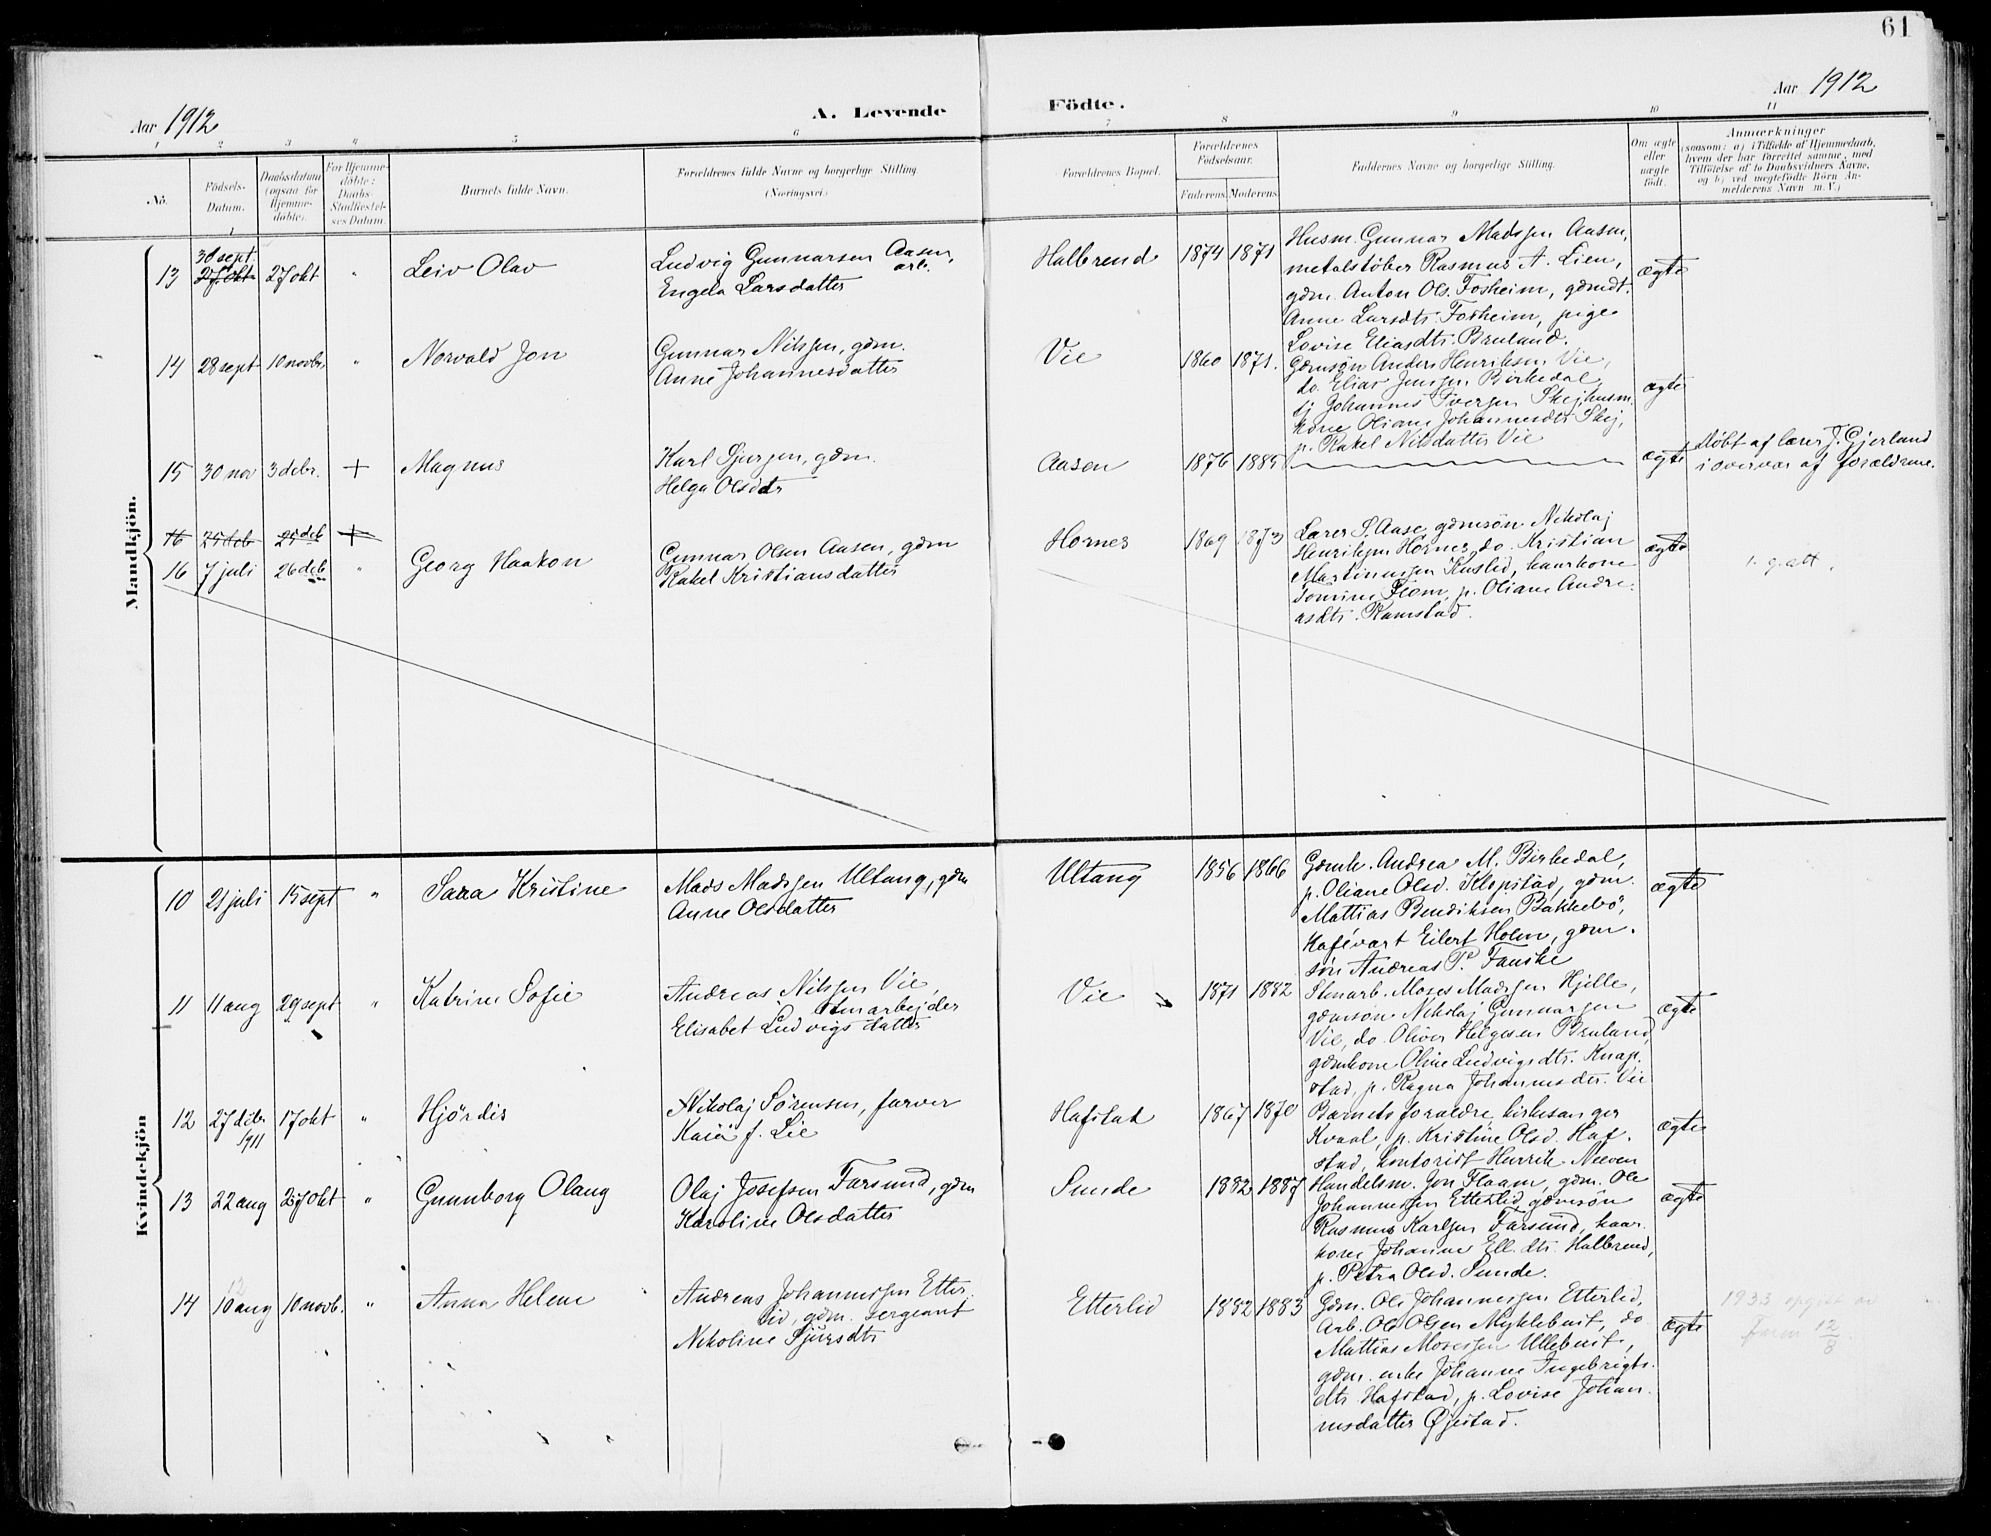 61
Aar 1912
A. Levende
Födte.
Aar 1912
1 2 3 4 5 6 7 8 9 10 11
No.
Födsels-
Datum.
Daabsdatum
(ogsaa for
Hjemme-
døbte).
For Hjemme-
döbte:
Daabs-
Stadfæstel-
ses Datum.
Barnets fulde Navn.
Forældrenes fulde Navne og borgerlige Stilling
(Næringsvei.)
Forældrenes Bopæl.
Forældrenes
Födselsaar.
Faderens. Moderens.
Faddernes Navne og borgerlige Stilling.
Om ægte
eller
uægte
født.
Anmærkninger
(saasom: a) i Tilfælde af Hjemmedaab,
hvem der har forrettet samme, med
Tilföielse af to Daabsvidners Navne,
og b) ved uægtefödte Börn An-
melderens Navn m. V.)
Mandkjön.
30 sept.
13 27 okt 27 okt " Leiv Olav
Ludvig Gunnarsen Aasen,
arb.
Engela Larsdatter
Halbrend 1874 1871
Husm. Gunnar Madsen Aasen,
metalstöber Rasmus A. Lien,
gdm. Anton Ols. Fosheim, gdmdt.
Anne Larsdtr. Fosheim, pige
Lovise Eliasdtr. Bruland.
ægte
14 28 sept 10 novbr. " Norvald Jon
Gunnar Nilssen, gdm.
Anne Johannesdatter
Vie 1860 1871.
Gdmsön Anders Henriksen Vie,
do. Elias Jenssen Birkedal,
Johannes Iversen Skej, husm.
kone Oliane Johannesdtr Skej,
p. Rakel Nilsdatter Vie
ægte
15 30 nov 3 debr. + Magnus
Karl Sjursen, gdm.
Helga Olsdtr
Aasen 1876 1885
ægte
döbt af lærer J. Gjerland
i overvær af forældrene.
16 25 deb 25 deb +
16 7 juli 26 deb " Georg Haakon
Gunnar Olsen Aasen, gdm
Rakel Kristiansdatter
Hornes 1869 1873
Lærer S. Aase, gdmsön Nikolaj
Henriksen Hornes, do. Kristian
Martinussen Kuslid, kaarkone
Flom, p. Oliane Andre-
asdtr. Ramstad.
ægte
Kvindekjön
10 21 juli 15 sept " Sara Kristine
Mads Madssen Ultang, gdm
Anne Olsdatter
Ultang 1856 1866
Gdmk. Andrea M. Birkedal,
p. Oliane Olsd. Klopstad, gdm.
Mattias Bendiksen Bakkebö,
Kafévært Eilert Holm, gdm.
sön Andreas P. Fauske
ægte
11 11 aug 29 sept " Katrine Sofie
Andreas Nilssen Vie,
stenarbejder
Elisabet Ludvigsdatter
Vie 1871 1882
Stenarb. Moses Madssen Hjelle,
gdmsön Nikolaj Gunnarsen
Vie, do. Oliver Helgesen Bruland,
gdmkone Oline Ludvigsdtr. Knap-
stad, p. Ragna Johannesdtr. Vie
ægte
12 27 debr. 17 okt " Hjördis
1911
Nikolaj Sörensen, farver
Kaia f. Lie
Hafstad 1867 1870
Barnets forældre, kirkesanger
Kvaal, p. Kristine Olsd. Haf-
stad, kontorist Henrik Neeven
ægte
13 22 aug 27 okt " Gunnborg Olaug
Olaj Josefsen Farsund, gdm
Karoline Olsdatter
Sunde 1882 1887
Handelsm. Jon Flaam, gdm. Ole
Johannessen Etterlid, gdmsön
Rasmus Karlsen Farsund, kaar-
kone Johanne Ell.dtr. Halbrend,
p. Petra Olsd. Sunde.
ægte
12
14 10 aug 10 novb. " Anna Helene
Andreas Johannessen Etter-
lid, gdm. sergeant
Nikoline Sjursdtr
Etterlid 1882 1883
Gdm. Ole Johannessen Etterlid,
Arb. Ole Olsen Myklebust, do
Mattias Mosessen Ullebust,
gdm. enke Johanne Ingebrigts-
dtr Hafstad, p. Lovise Johan-
nesdatter Øjestad.
ægte
1933 opgitt av
12/8